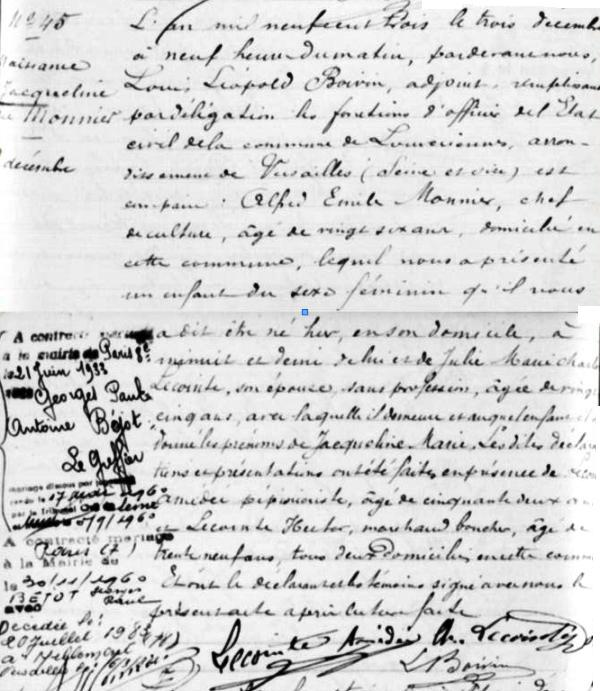 No 45
Naissance
Jacqueline
Monnier
décembre
L'an mil neuf cent trois le trois décembre
à neuf heures du matin, par devant nous,
Louis Léopold Boivin, adjoint, remplissant
par délégation les fonctions d'officier de l'Etat
civil de la commune de Louveciennes, arron-
dissement de Versailles (Seine et Oise) est
comparu : Alfred Emile Monnier, chef
de culture, âgé de vingt six ans, domicilié en
cette commune, lequel nous a présenté
un enfant du sexe féminin qu'il nous
a dit être né hier, en son domicile, à
minuit et demi de lui et de Julie Marie
Lecointe, son épouse, sans profession, âgée de vingt
cinq ans, avec laquelle il demeure et auquel enfant il a
donné les prénoms de Jacqueline Marie. Les dites déclara
tions et présentations ont été faites en présence de
Amédée pépinieriste, âgé de cinquante deux ans
et Lecointe Hector, marchand boucher, âgé de
trente neuf ans, tous deux domiciliés en cette commune
Et ont le déclarant et les témoins signé avec nous le
présent acte après lecture faite
Lecointe Amédée
L Boivin
A contracté mariage
à la mairie de Paris 8e
le 21 Juin 1933
Georges Paul
Antoine Béjot
Le Greffier
mariage dissous par
rendu le 17 1960
par le tribunal de la Seine
5/9/1960
A contracté mariage
Paris (7)
à la Mairie de
le 30/11/1960
avec BEJOT Georges
Paul
Décédée le:
20 Juillet 1982
à